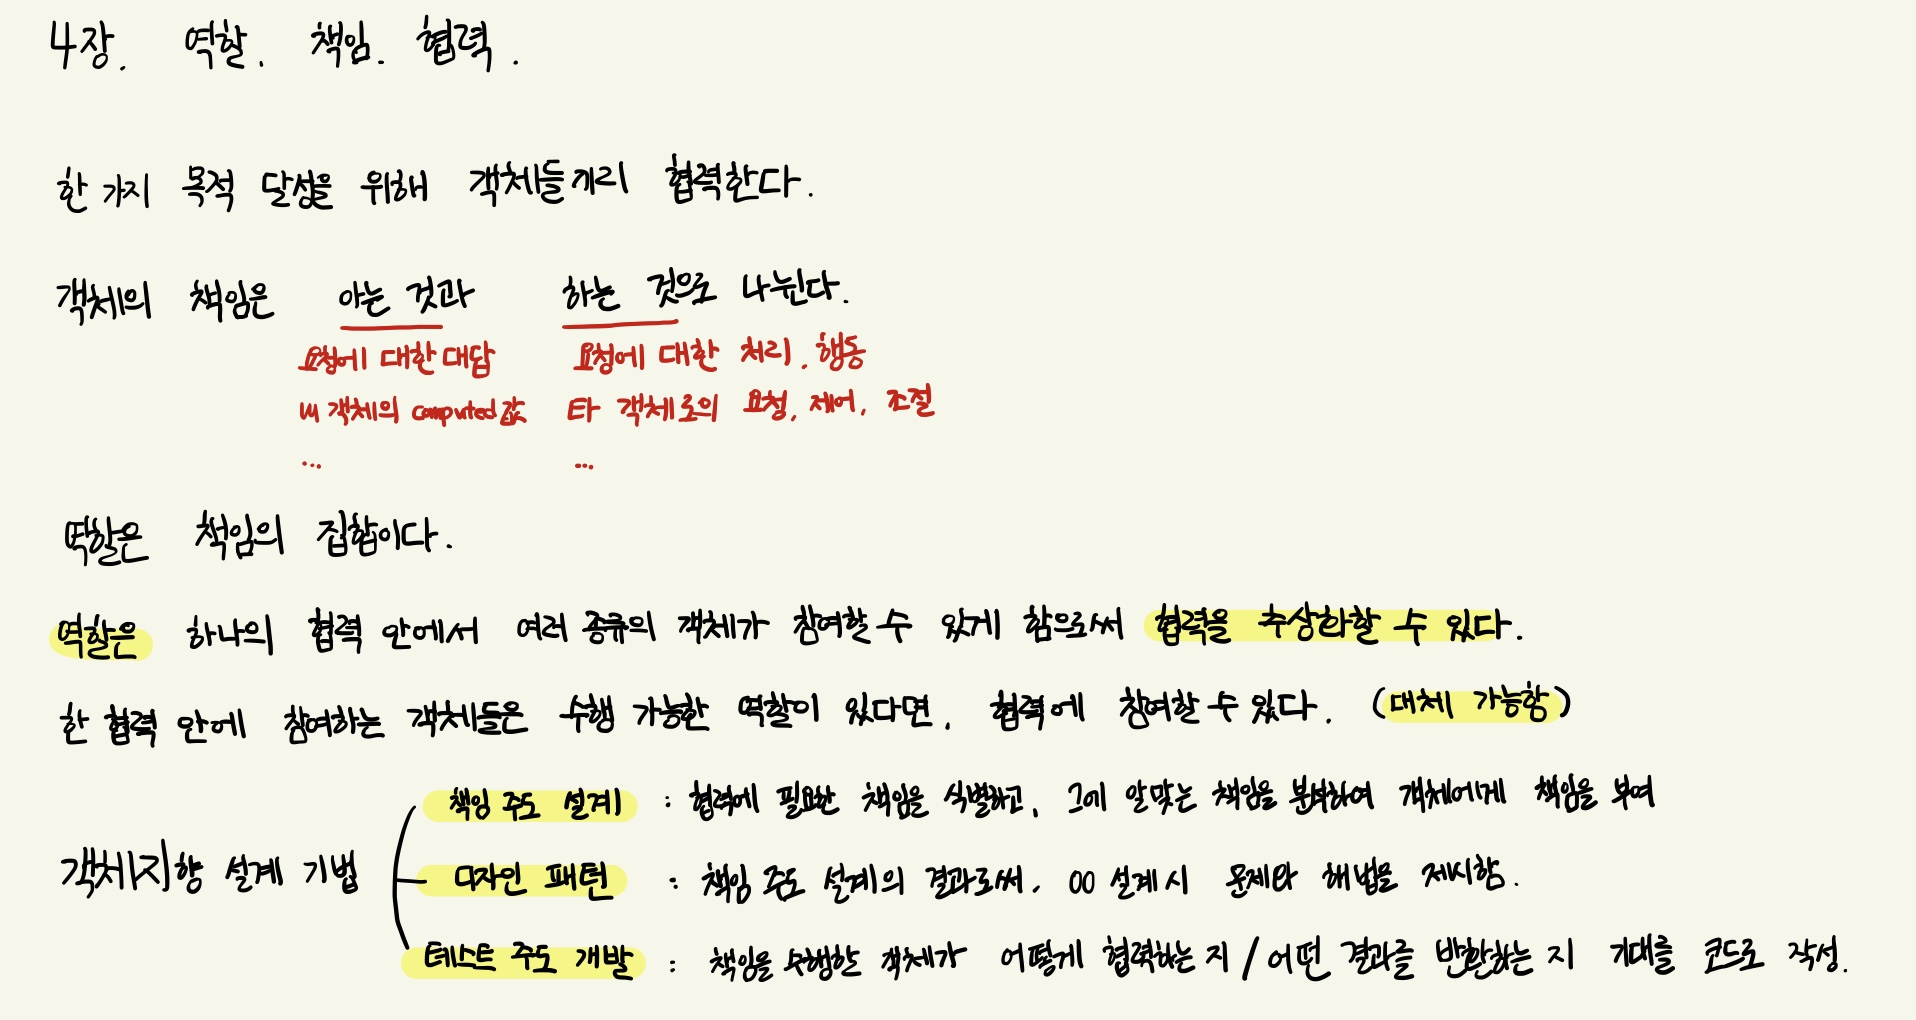 4장. 역할, 책임, 협력.
한 가지 목적 달성을 위해 객체들끼리 협력한다.
객체의 책임은 아는 것과 하는 것으로 나뉜다.
요청에 대한 대답 요청에 대한 처리, 행동
객체의 computed 값 타 객체로의 요청, 제어, 조절
... ...
역할은 책임의 집합이다.
역할은 하나의 협력 안에서 여러 종류의 객체가 참여할 수 있게 함으로써 협력을 추상화할 수 있다.
한 협력 안에 참여하는 객체들은 수행 가능한 역할이 있다면, 협력에 참여할 수 있다. (대체 가능함)
책임 주도 설계 : 협력에 필요한 책임을 식별하고, 그에 알맞는 책임을 분석하여 객체에게 책임을 부여
객체지향 설계 기법
디자인 패턴 : 책임 주도 설계의 결과로써, OO 설계 시 문제와 해법을 제시함.
테스트 주도 개발 : 책임을 수행한 객체가 어떻게 협력하는 지 / 어떤 결과를 반환하는 지 기대를 코드로 작성.